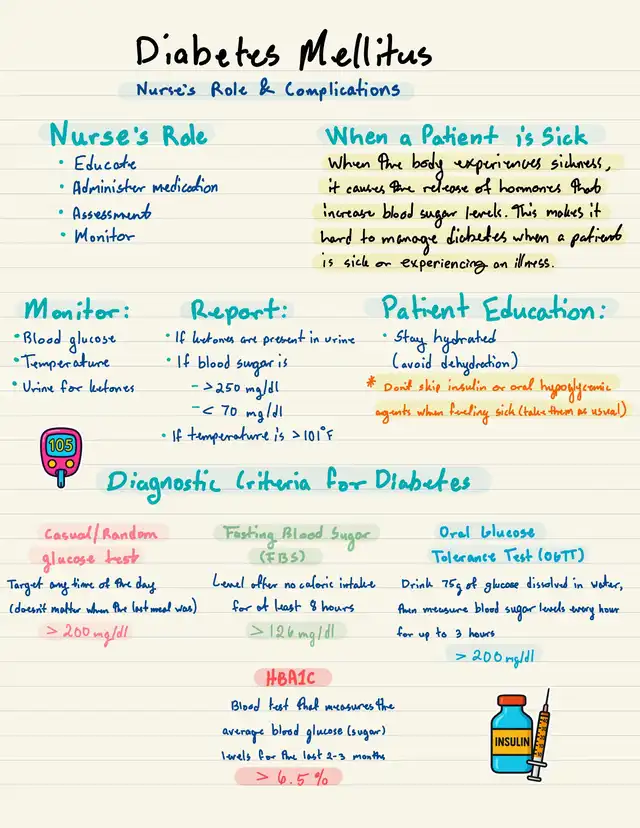 Diabetes Mellitus
Nurse's Role & Complications
Nurse's Role
• Educate
• Administer medication
• Assessment
• Monitor
When a Patient is Sick
When the body experiences sickness,
it causes the release of hormones that
increase blood sugar levels. This makes it
hard to manage diabetes when a patient
is sick or experiencing an illness.
Monitor:
• Blood glucose
• Temperature
• Urine for ketones
Report:
• If ketones are present in urine
• If blood sugar is
- >250 mg/dl
- < 70 mg/dl
• If temperature is >101°F
Patient Education:
• Stay hydrated
(avoid dehydration)
* Don't skip insulin or oral hypoglycemic
agents when feeling sick (take them as usual)
105
Diagnostic Criteria for Diabetes
Casual/Random
glucose test
Target any time of the day
(doesn't matter when the last meal was)
> 200 mg/dl
Fasting Blood Sugar
(FBS)
Level after no caloric intake
for at least 8 hours
> 126 mg/dl
Oral Glucose
Tolerance Test (OGTT)
Drink 75g of glucose dissolved in water,
then measure blood sugar levels every hour
for up to 3 hours
> 200 mg/dl
HBA1C
Blood test that measures the
average blood glucose (sugar)
levels for the last 2-3 months
> 6.5 %
INSULIN